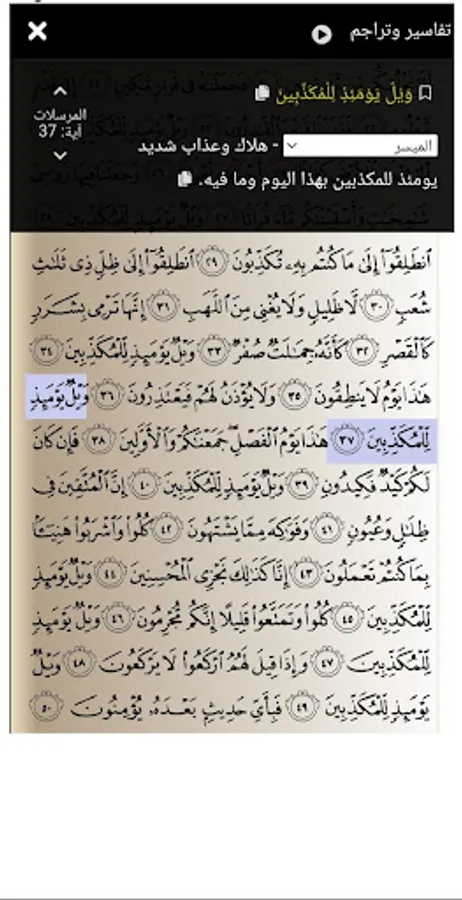 تفاسير وتراجم
وَيْلٌ يَوْمَئِذٍ لِّلْمُكَذِّبِينَ
المرسلات
آية: 37
الميسر - هلاك وعذاب شديد
يومئذ للمكذبين بهذا اليوم وما فيه.
ٱنطَلِقُوٓا۟ إِلَىٰ مَا كُنتُم بِهِۦ تُكَذِّبُونَ ٢٩ ٱنطَلِقُوٓا۟ إِلَىٰ ظِلٍّ ذِى ثَلَٰثِ
شُعَبٍ ٣٠ لَّا ظَلِيلٍ وَلَا يُغْنِى مِنَ ٱللَّهَبِ ٣١ إِنَّهَا تَرْمِى بِشَرَرٍ
كَٱلْقَصْرِ ٣٢ كَأَنَّهُۥ جِمَٰلَتٌ صُفْرٌ ٣٣ وَيْلٌ يَوْمَئِذٍ لِّلْمُكَذِّبِينَ ٣٤
هَٰذَا يَوْمُ لَا يَنطِقُونَ ٣٥ وَلَا يُؤْذَنُ لَهُمْ فَيَعْتَذِرُونَ ٣٦ وَيْلٌ يَوْمَئِذٍ
لِّلْمُكَذِّبِينَ ٣٧ هَٰذَا يَوْمُ ٱلْفَصْلِ جَمَعْنَٰكُمْ وَٱلْأَوَّلِينَ ٣٨ فَإِن كَانَ
لَكُمْ كَيْدٌ فَكِيدُونِ ٣٩ وَيْلٌ يَوْمَئِذٍ لِّلْمُكَذِّبِينَ ٤٠ إِنَّ ٱلْمُتَّقِينَ فِى
ظِلَٰلٍ وَعُيُونٍ ٤١ وَفَوَٰكِهَ مِمَّا يَشْتَهُونَ ٤٢ كُلُوا۟ وَٱشْرَبُوا۟ هَنِيٓـًٔۢا
بِمَا كُنتُمْ تَعْمَلُونَ ٤٣ إِنَّا كَذَٰلِكَ نَجْزِى ٱلْمُحْسِنِينَ ٤٤ وَيْلٌ يَوْمَئِذٍ
لِّلْمُكَذِّبِينَ ٤٥ كُلُوا۟ وَتَمَتَّعُوا۟ قَلِيلًا إِنَّكُم مُّجْرِمُونَ ٤٦ وَيْلٌ يَوْمَئِذٍ
لِّلْمُكَذِّبِينَ ٤٧ وَإِذَا قِيلَ لَهُمُ ٱرْكَعُوا۟ لَا يَرْكَعُونَ ٤٨ وَيْلٌ
يَوْمَئِذٍ لِّلْمُكَذِّبِينَ ٤٩ فَبِأَىِّ حَدِيثٍۭ بَعْدَهُۥ يُؤْمِنُونَ ٥٠